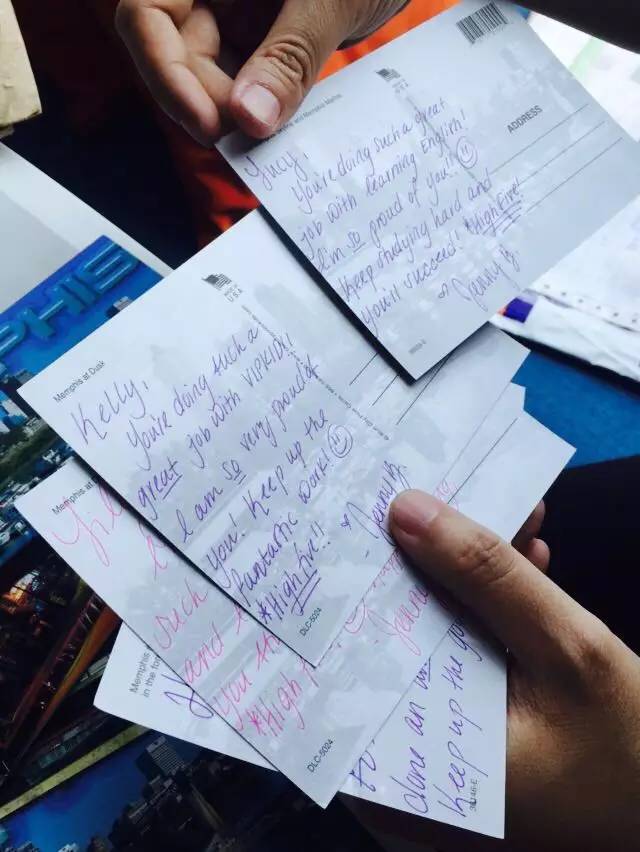 PHIS
and Memphis Marble
MADE IN
U S A
ADDRESS
Yucy,
You're doing such a great
job with learning English!
I'm so proud of you!!
Keep studying hard and
you'll succeed! *High Five!
♡ Jenny B
Memphis at Dusk
MADE IN
U S A
Kelly,
You're doing such a
great job with VIPKID!
I am so very proud of
you! Keep up the
fantastic work!
*High five!!
- Jenny B.
DLC-5024
Memphis at
such
and
you
*High f
- Jenny
DLC-5024
Memphis
in the for
done an
Keep up the
38146-E